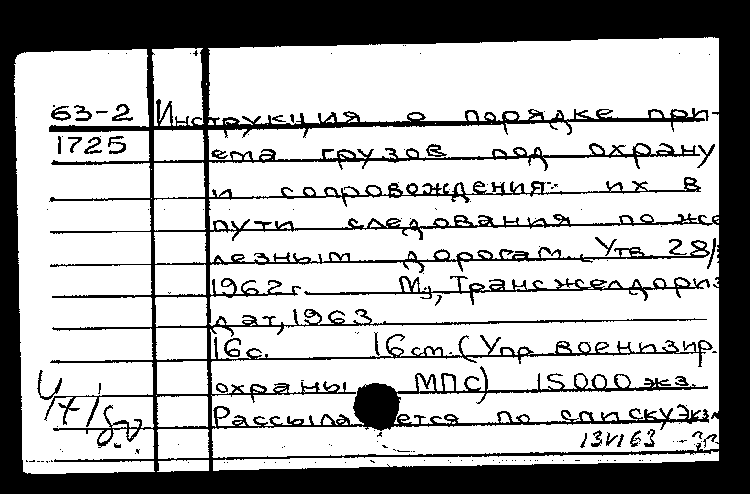 63-2 Инструкция о порядке при-
1725 ема грузов под охрану
и сопровождения их в
пути следования по же
лезным дорогам. Утв 28/
1962г. М., Трансжелдориз
дат, 1963.
16с. 16см. (Упр военизир.
охраны МПС) 15000 экз.
Рассылается по списку
13 VI 63